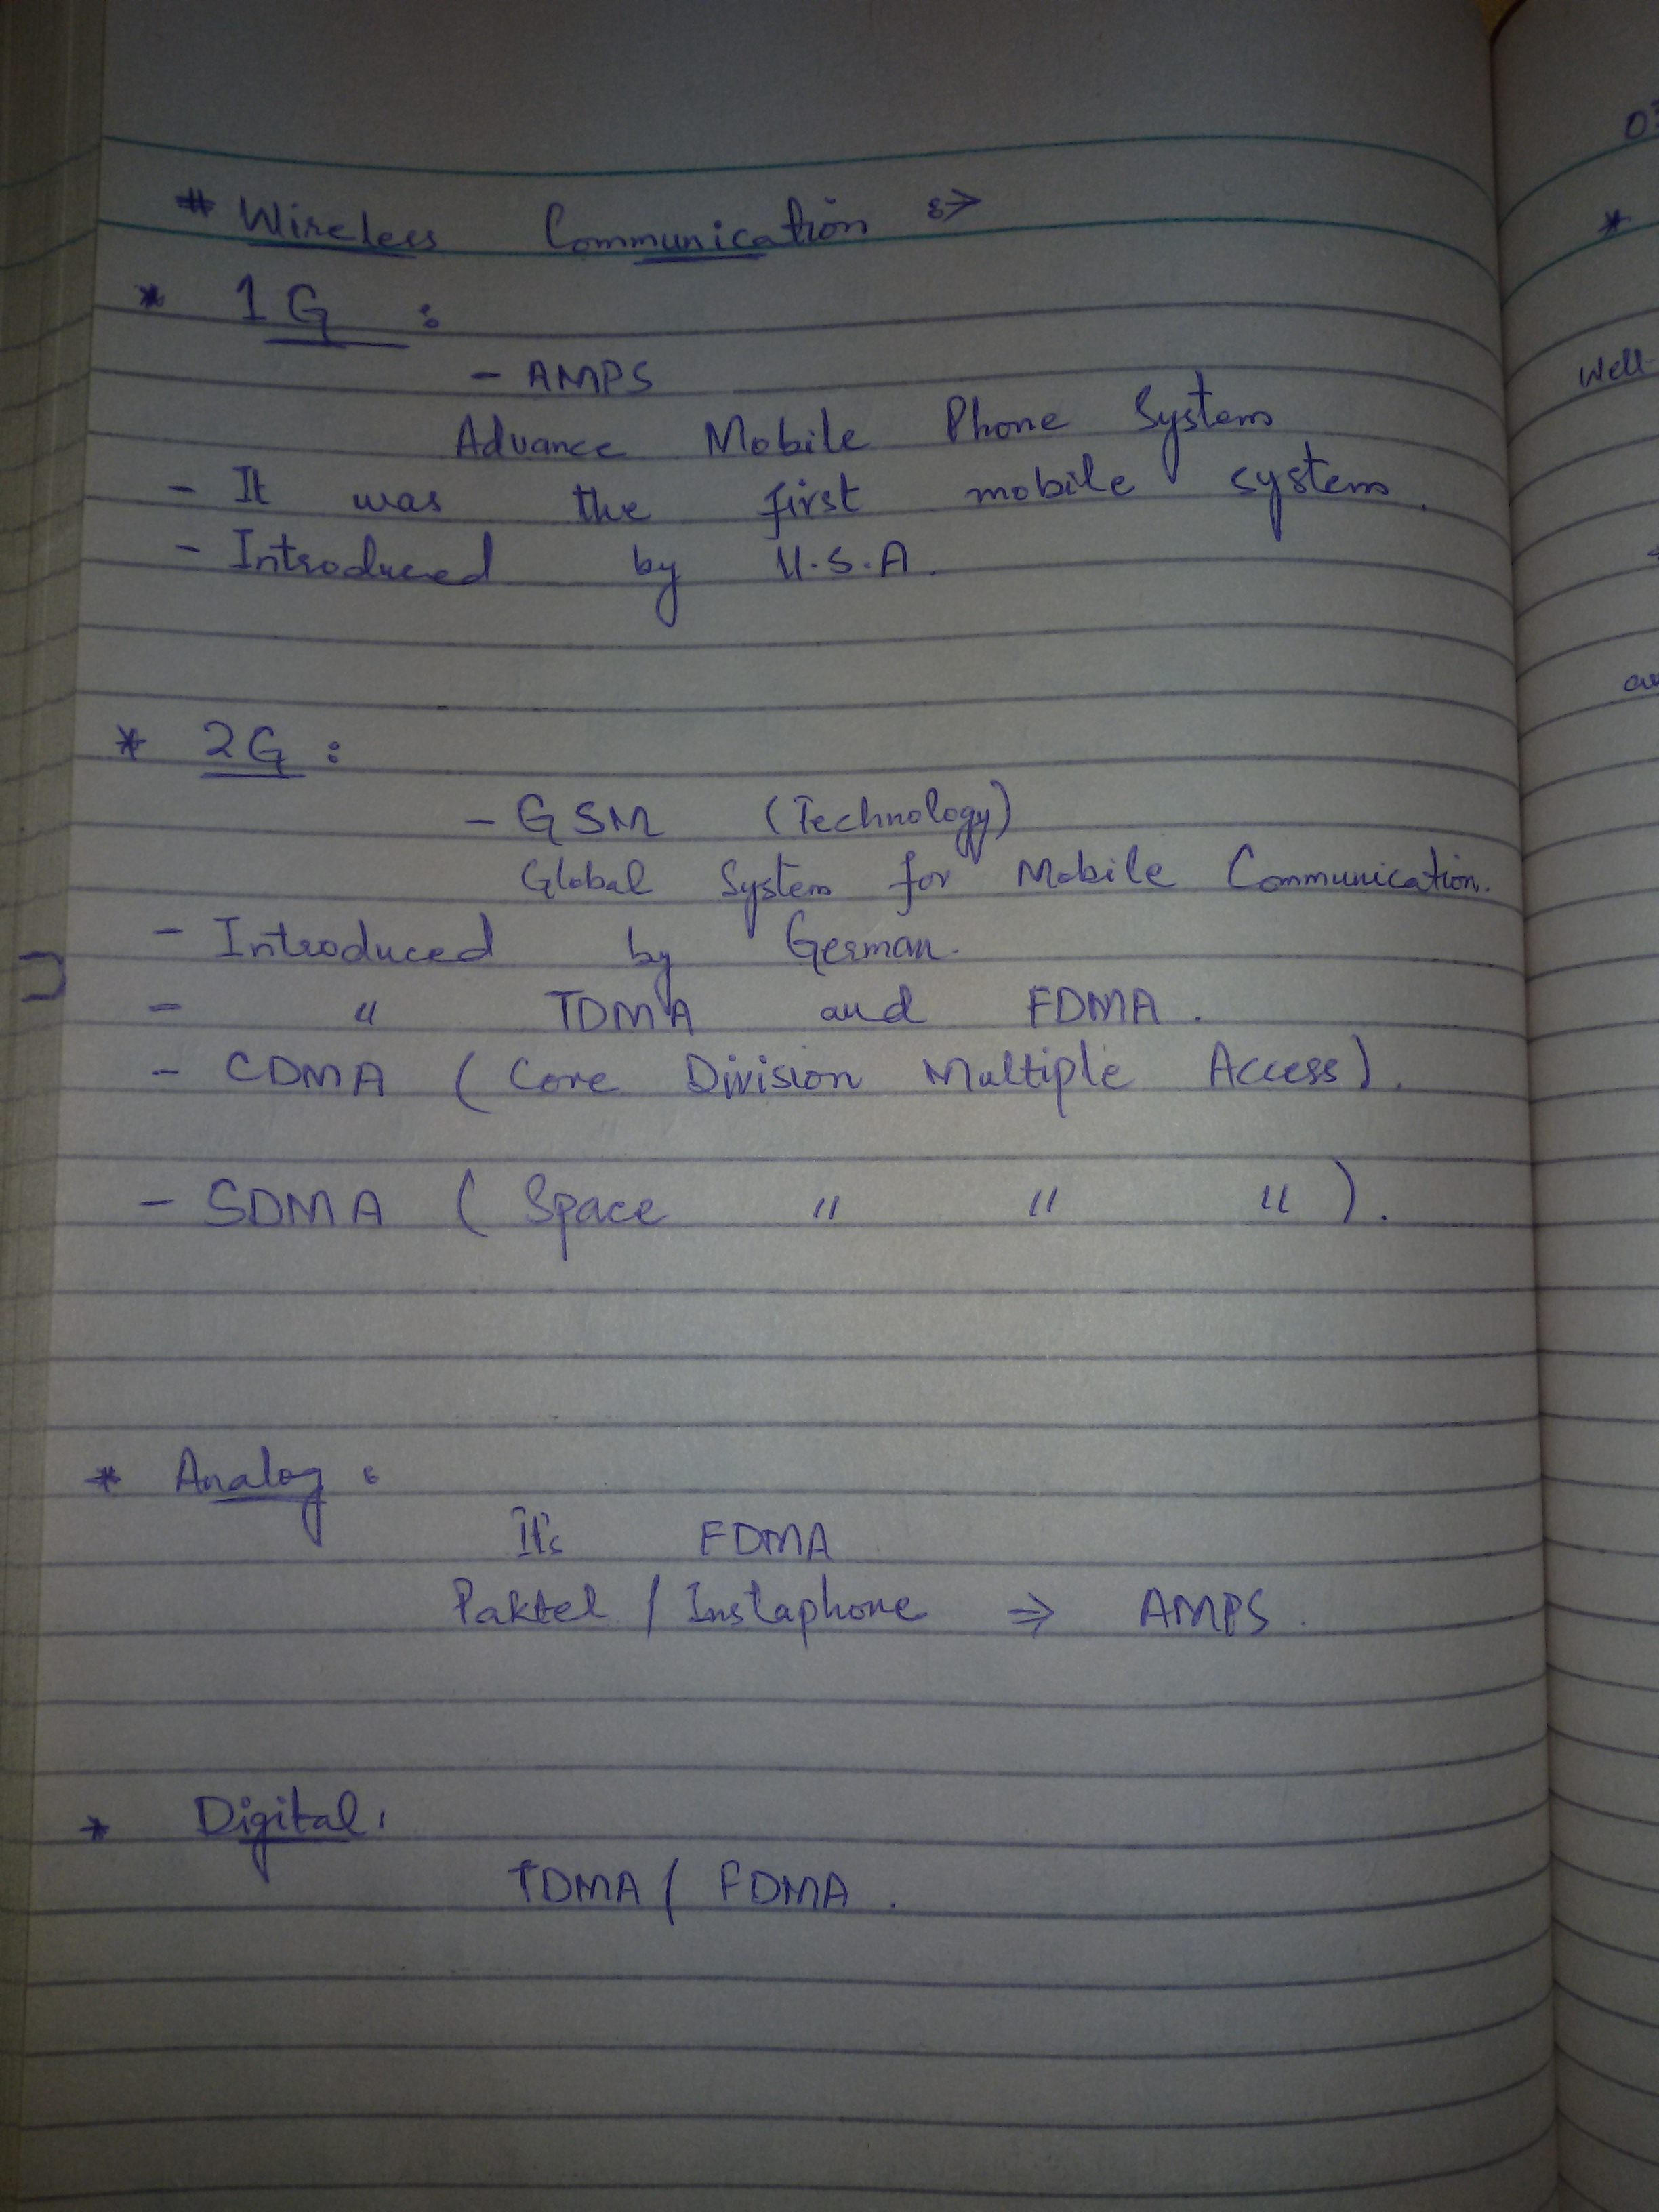 # Wireless Communication :->
* 1G :
- AMPS
Advance Mobile Phone System
- It was the first mobile system.
- Introduced by U.S.A.
* 2G :
- GSM (Technology)
Global System for Mobile Communication.
- Introduced by German.
- " TDMA and FDMA.
- CDMA ( Core Division Multiple Access).
- SDMA ( Space " " " ).
* Analog :
It's FDMA
Paktel / Instaphone ⇒ AMPS.
* Digital :
TDMA / FDMA.
*
Well-